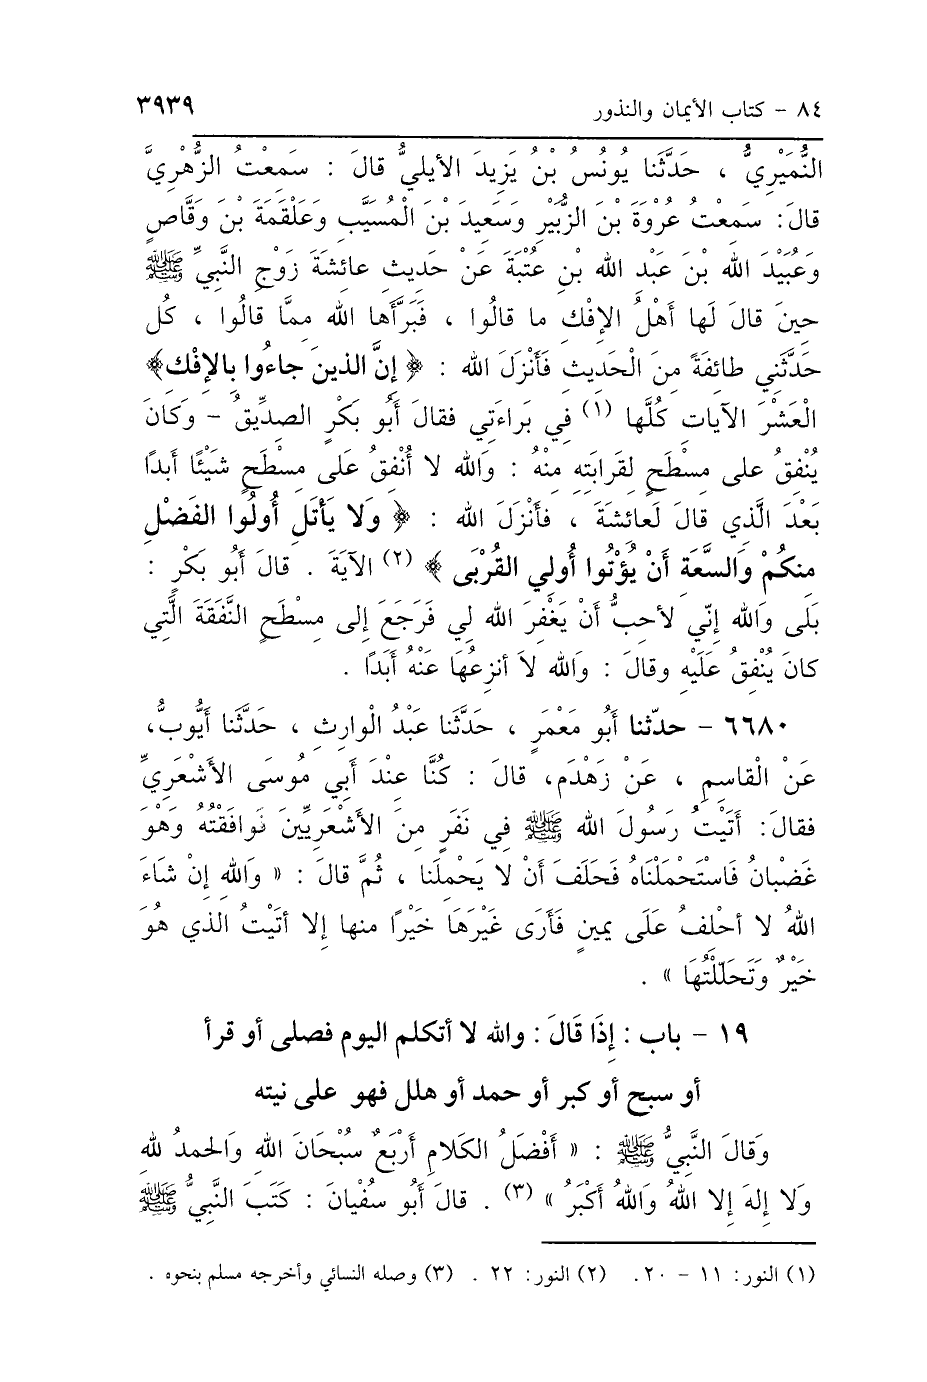 ٨٤ - كتاب الأيمان والنذور ٣٩٣٩
النُّمَيْرِيُّ ، حَدَّثَنا يُونُسُ بْنُ يَزِيدَ الأيليُّ قالَ : سَمِعْتُ الزُّهْرِيَّ
قالَ: سَمِعْتُ عُرْوَةَ بْنَ الزُّبَيْرِ وَسَعِيدَ بْنَ الْمُسَيَّبِ وَعَلْقَمَةَ بْنَ وَقَّاصٍ
وَعُبَيْدَ الله بْنَ عَبْدِ الله بْنِ عُتْبَةَ عَنْ حَدِيثِ عائشَةَ زَوْجِ النَّبِيِّ ﷺ
حِينَ قالَ لَها أَهْلُ الإفْكِ ما قالُوا ، فَبَرَّأَها الله مِمَّا قالُوا ، كُل
حَدَّثَنِي طائفَةً مِنَ الْحَدِيثِ فَأَنْزَلَ الله : ﴿ إنَّ الذينَ جاءُوا بالإفْك﴾
الْعَشْرَ الآيات كُلَّها (١) فِي بَراءَتِي فقالَ أَبُو بَكْرٍ الصدِّيقُ - وَكَانَ
يُنْفِقُ على مِسْطَحٍ لقَرابَتِهِ مِنْهُ : وَالله لا أُنْفِقُ عَلَى مِسْطَحٍ شَيْئًا أَبدًا
بَعْدَ الَّذي قالَ لَعائشَةَ ، فأَنْزَلَ الله : ﴿ وَلا يَأْتَلِ أُولُوا الفَضْلِ
منكُمْ وَالسَّعَةِ أَنْ يُؤْتُوا أُولي القُرْبَى ﴾ (٢) الآيَةَ . قالَ أَبُو بَكْرٍ :
بَلى وَالله إنّي لأحِبُّ أَنْ يَغْفِرَ الله لِي فَرَجَعَ إلى مِسْطَحٍ النَّفَقَةَ الَّتي
كانَ يُنْفِقُ عَلَيْهِ وقالَ : وَالله لاَ أنزِعُهَا عَنْهُ أَبَدًا .
٦٦٨٠ - حدّثنا أَبُو مَعْمَرٍ ، حَدَّثَنا عَبْدُ الْوارِثِ ، حَدَّثَنا أَيُّوبُ،
عَنْ الْقاسِمِ ، عَنْ زَهْدَمٍ، قالَ : كُنَّا عِنْدَ أَبي مُوسَى الأشْعَرِيِّ
فقالَ: أَتَيْتُ رَسُولَ الله ﷺ فِي نَفَرٍ مِنَ الأشْعَرِيِّينَ فَوافَقْتُهُ وَهْوَ
غَضْبانُ فَاسْتَحْمَلْنَاهُ فَحَلَفَ أَنْ لا يَحْمِلَنا ، ثُمَّ قالَ : « وَالله إنْ شَاءَ
اللهُ لا أحْلِفُ عَلَى يمينٍ فَأَرَى غَيْرَهَا خَيْرًا منها إلا أتَيْتُ الذي هُوَ
خَيْرٌ وَتَحَلّلْتُهَا » .
١٩ - باب : إِذَا قَالَ : والله لا أتكلم اليوم فصلى أو قرأ
أو سبح أو كبر أو حمد أو هلل فهو على نيته
وَقَالَ النَّبِيُّ ﷺ : « أَفْضَلُ الكَلامِ أَرْبَعٌ سُبْحَانَ اللهِ وَالحمدُ لله
وَلا إلهَ إلا اللهُ وَاللهُ أكْبَرُ » (٣) . قالَ أَبُو سُفْيانَ : كَتَبَ النَّبِيُّ ﷺ
(١) النور: ١١ - ٢٠. (٢) النور: ٢٢ . (٣) وصله النسائي وأخرجه مسلم بنحوه .